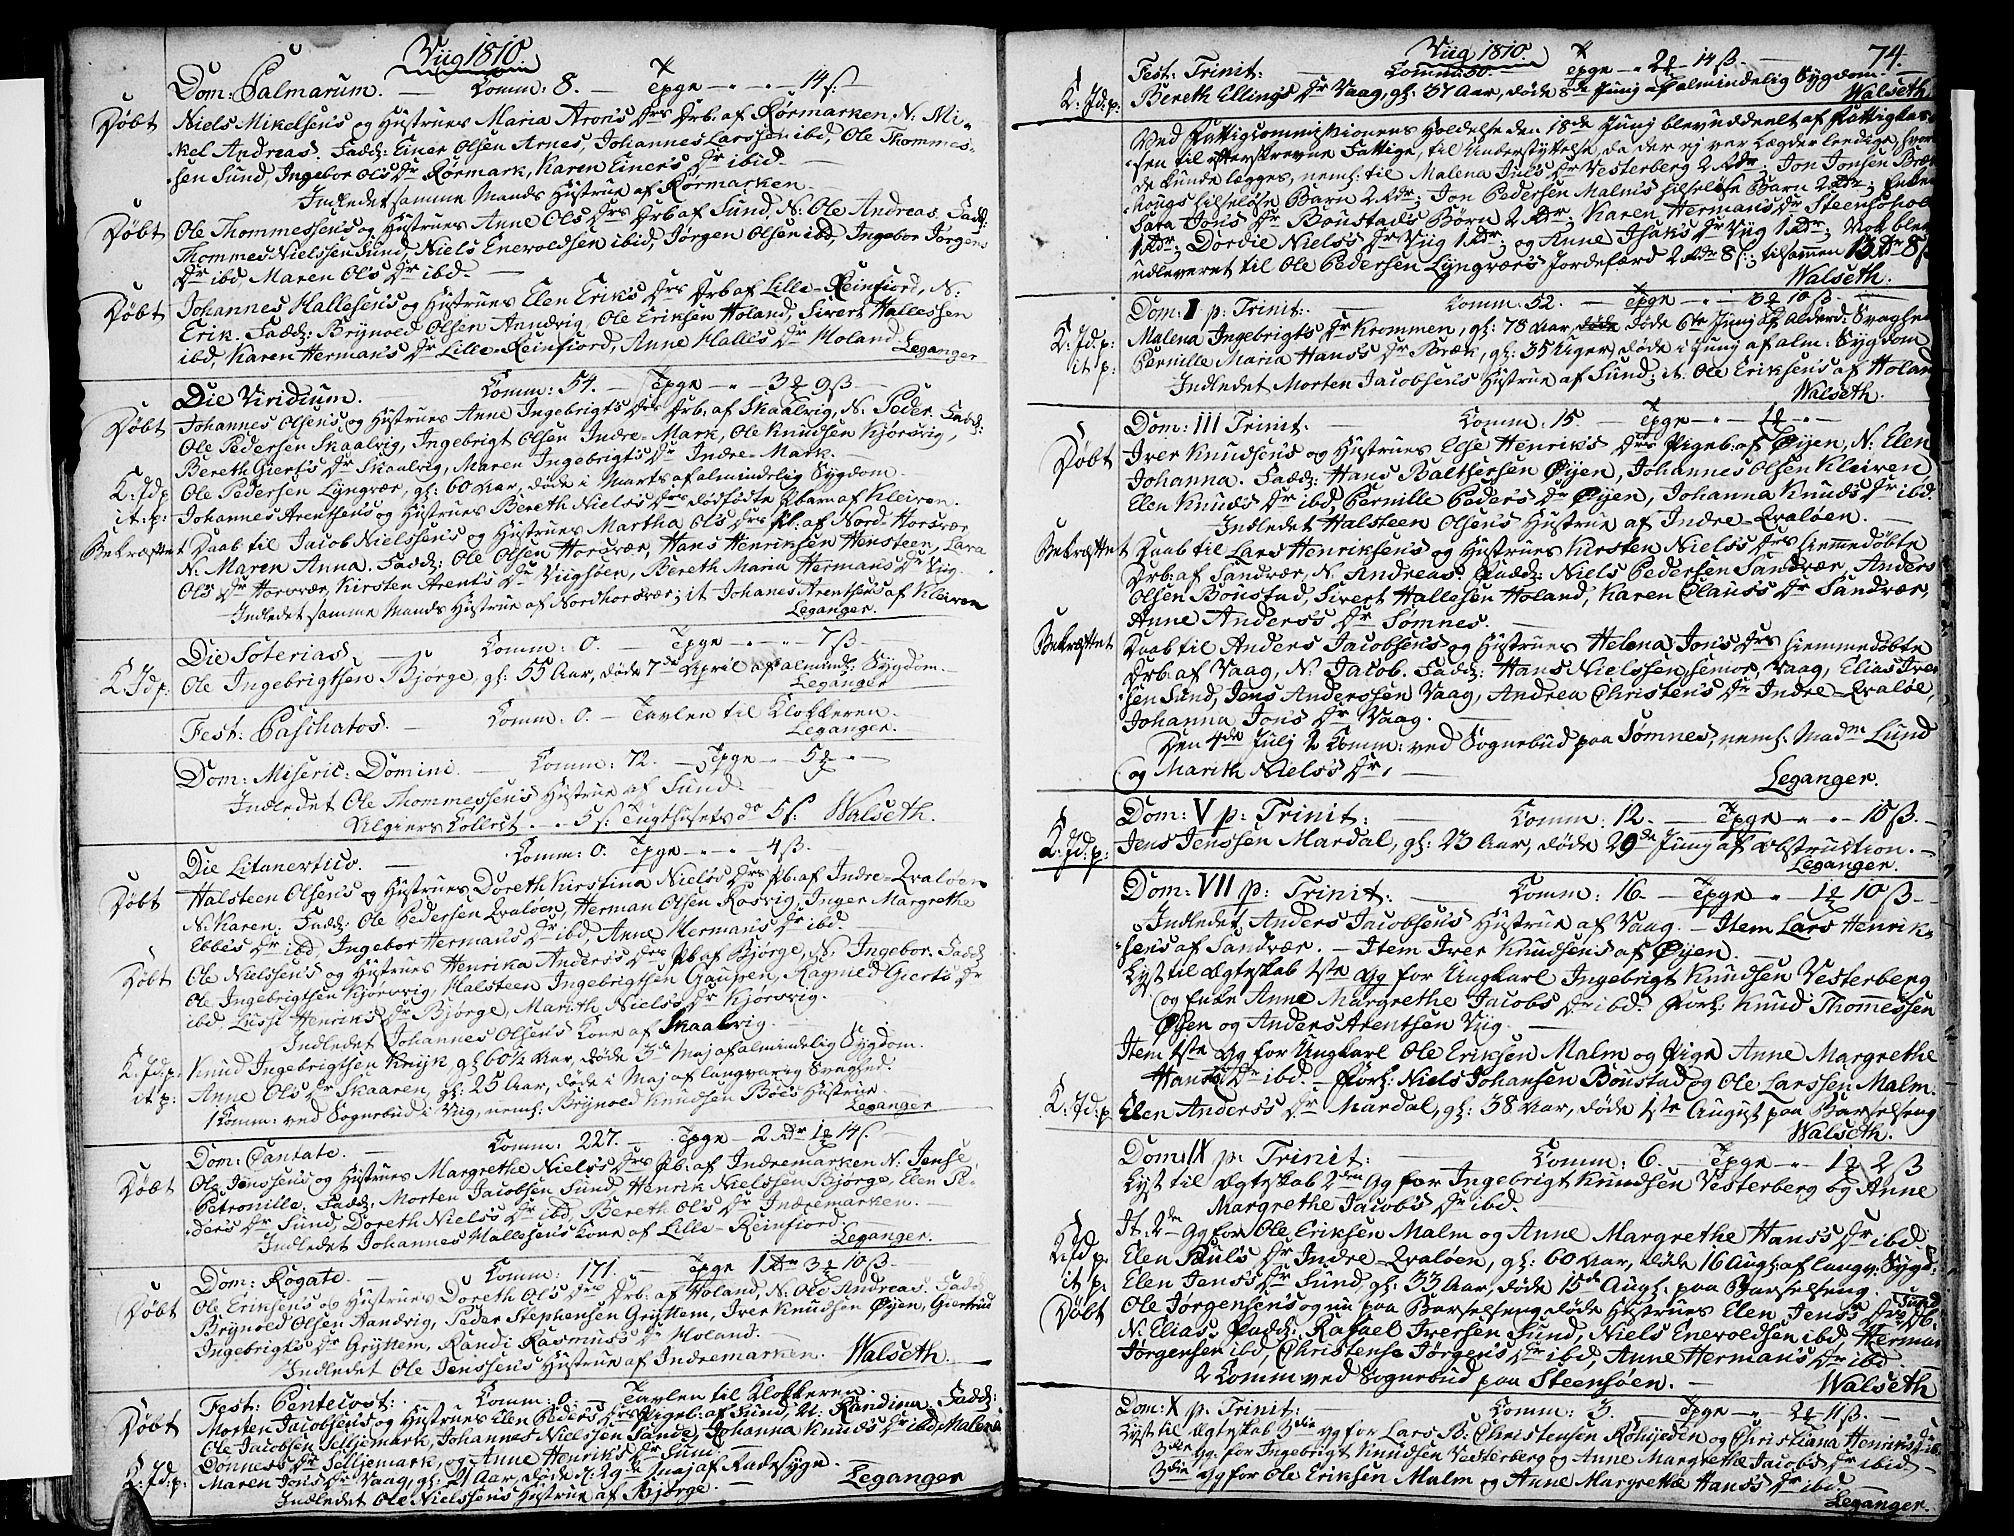 Viig 1810.
Dom: Palmarum. — Comm: 8. — Tpge — 14 ß.
Døbt Niels Mikelsens og Hustrues Maria Arons Drs Drb: af Rørmarken, N: Mi-
kel Andreas. Fadd: Einer Olsen Arnes, Johannes Larssen ibd, Ole Thommes-
sen Sund, Ingebor Ols Dr Rørmark, Karen Einers Dr ibid. —
Indledet samme Mands Hustrue af Rørmarken. —
Døbt Ole Thommessens og Hustrues Anne Ols Drs Drb: af Sund, N: Ole Andreas. Fadd:
Thommes Nielssen Sund, Niels Enevoldsen ibid, Jørgen Olsen ibd, Ingebor Jørgens
Dr ibd, Maren Ols Dr ibd. —
Døbt Johannes Hallesens og Hustrues Elen Eriks Drs Drb: af Lille-Reinfiord, N:
Erik. Fadd: Brynold Olsen Aandvig, Ole Eriksen Holand, Sivert Hallessen
ibid, Karen Hermans Dr Lille-Reinfiord, Anne Halles Dr Holand. Leganger
Die Viridium. Comm: 54. — Tpge — 3 9 ß —
Døbt Johannes Olsens og Hustrues Anne Ingebrigts Drs Drb: af Skaalvig, N: Peder. Fadd:
Ole Pedersen Skaalvig, Ingebrigt Olsen Indre-Mark, Ole Knudsen Kjørsvig,
Bereth Gierts Dr Skaalvig, Maren Ingebrigts Dr Indre-Mark. —
K: Jd: p: Ole Pedersen Lyngvær, gl: 60 Aar, døde i Marts af almindelig Sygdom.
it: p: Johannes Arentsens og Hustrues Bereth Niels's Drs dødfødte Barn af Kleiven.
Bekræftet Daab til Jacob Nielssens og Hustrues Martha Ols Drs Pb. af Nord-Horsvær
N: Maren Anna. Fadd: Ole Olsen Horsvær, Hans Henriksen Hensteen, Lara
Ols Dr Horsvær, Kirsten Arents Dr Viigsøen, Bereth Maria Hermans Dr Viig.
Indledet samme Mands Hustrue af Nordhorsvær; it Johannes Arentsens af Kleiven
Leganger.
Die Soterias. — Comm: 0. — Tpge — 7 ß —
K: Jd: p: Ole Ingebrigtsen Bjørge, gl: 55 Aar, døde 7de April af almind: Sygdom. —
Leganger
Fest: Paschatos. — Comm: 0. — Tavlen til Klokkeren. —
Leganger.
Dom: Miseric: Domini. — Comm: 72. — Tpge — 5
Indledet Ole Thommessens Hustrue af Sund. —
Algiers Collect — 5 ß: Tugthusets do 5 ß: Walseth.
Die Litanevtico. — Comm: 0. Tpge — 4 ß. —
Døbt Halsteen Olsens og Hustrues Doreth Kirstina Niels's Drs Pb: af Indre-Qvaløen
N: Karen. Fadd: Ole Pedersen Qvaløen, Herman Olsen Rosvig, Inger Margrethe
Ebbes Dr ibd, Ingebor Hermans Dr ibd, Anne Hermans Dr ibd. —
Døbt Ole Nielssens og Hustrues Henrika Anders's Drs Pb af Bjørge, N: Ingebor. Fadd:
Ole Ingebrigtsen Kjørsvig, Halsteen Ingebrigtsen Gaupen, Ragnild Gierts Dr
ibd. Lussi Henriks Dr Bjørge, Marith Niels's Dr Kjørsvig.
Indledet Johannes Olsens Kone af Skaalvig. —
K: Jd: p: Knud Ingebrigtsen Kriik gl 60½ Aar, døde 3de Maj af almindelig Sygdom.
it p: Anne Ols Dr Skaaren, gl: 25 Aar, døde i Maj af langvarig Svaghed.
1 Comm: ved Sognebud i Viig, neml: Brynold Knudsen Bøes Hustrue. —
Leganger
Dom: Cantate. — Comm: 227. — Tpge — 2 Rdr 1 14 ß. —
Døbt Ole Jenssens og Hustrues Margrethe Niels's Drs Pb: af Indremarken N: Jense
Petronille. Fadd: Morten Jacobsen Sund, Henrik Nielssen Bjørge, Elen Pe-
ders Dr Sund, Doreth Niels's Dr ibd, Bereth Ols Dr Indremarken. —
Indledet Johannes Hallesens Kone af Lille-Reinfiord. —
Leganger.
Dom: Rogate. — Comm: 171. — Tpge 1 Rdr 3 10 ß —
Døbt Ole Eriksens og Hustrues Doreth Ols Drs Drb: af Holand, N: Ole Andreas. Fadd:
Brynold Olsen Aandvig, Peder Stephensen Gryttem, Iver Knudsen Øyen, Giertrud
Ingebrigts Dr Gryttem, Randi Rasmus's Dr Holand. —
Indledet Ole Jenssens Hustrue af Indremarken. Walseth.
Fest: Pentecost: Comm: 0. — Tavlen til Klokkeren. —
Døbt Morten Jacobsens og Hustrues Elen Peders Drs Pigeb: af Sund, N: Randina. Fadd:
Ole Jacobsen Silljemark, Johannes Nielssen Sande, Johanna Knuds Dr ibid, Malena
Dønnes Dr Silljemark, og Anne Henriks Dr Sund. —
K: Jd: p: Maren Jons Dr Vaag, gl: 21 Aar, døde d. 29de Maj af Radesyge. —
Indledet Ole Nielssens Hustrue af Bjørge. — Leganger
Viig 1810. 74.
Fest: Trinit: Comm: 50. — Tpge — 2 14 ß —
K: Jd: p: Bereth Ellings Dr Vaag, gl: 37 Aar, døde 8de Junj af almindelig Sygdom.
Walseth.
Ved Fattigcommissionens Holdelse den 18de Junj blev uddeelt af Fattigkas-
sen til efterskrevne Fattige, til Understyttelse, da der ej var Lægder ledige, hvor
de kunde lægges, neml: til Malena Juls Dr Vesterberg 2 Rdr, Jon Jonsen Bræk-
kongs silseløse Barn 2 Rdr; Jon Pedersen Malms silseløse Barn 2 Rdr; Enken
Sara Jons Dr Boustads Børn 2 Rdr; Karen Hermans Dr Steensøhol
1 Rdr; Dordie Niels's Dr Viig 1 Rdr; og Anne Isaks Dr Viig 1 Rdr; Nok blev
udleveret til Ole Pedersen Lyngvær's Jordefærd 2 Rdr 8 ß:; tilsammen 13 Rdr 8 ß
Walseth.
Dom: I p: Trinit: Comm: 52. — Tpge — 3 10 ß —
K: Jd: p: Malena Ingebrigts Dr Krommen, gl: 78 Aar, døde 6te Junj af Alderd: Svaghed
it p: Pernille Maria Hans's Dr Bræk, gl: 35 Uger, døde i Junj af alm: Sygdom
Indledet Morten Jacobsens Hustrue af Sund; it Ole Eriksens af Holand
Walseth.
Dom: III Trinit: — Comm: 15. — Tpge — 1
Døbt Iver Knudsens og Hustrues Else Henriks Drs Pigeb: af Øyen, N: Elen
Johanna. Fadd: Hans Balthersen Øyen, Johannes Olsen Kleiven
Elen Knuds Dr ibd, Pernille Peders Dr Øyen, Johanna Knuds Dr ibd.
Indledet Halsteen Olsens Hustrue af Indre-Qvaløen. —
Bekræftet Daab til Lars Henriksens og Hustrues Kirsten Niels's Drs hiemmedøbte
Drb: af Sandvær, N: Andreas. Fadd: Niels Pedersen Sandvær, Anders
Olsen Boustad, Sivert Hallesen Holand, Karen Claus's Dr Sandvær,
Anne Anders's Dr Sømnes. —
Bekræftet Daab til Anders Jacobsens og Hustrues Helena Jons Drs hiemmedøbte
Drb: af Vaag, N: Jacob. Fadd: Hans Nielssen senior Vaag, Elias Iver-
sen Sund, Jens Anderssen Vaag, Andrea Christens Dr Indre-Qvaløe,
Johanna Jons Dr Vaag. —
Den 4de Julj 2 Komm: ved Sognebud paa Sømnes, neml: Madm Lund
og Marith Niels's Dr. — Leganger.
Dom: V p: Trinit: — Comm: 12. — Tpge — 15 ß —
K: Jd: p: Jens Jenssen Mardal, gl: 23 Aar, døde 29de Junj af Obstruction. —
Leganger.
Dom: VII p: Trinit: — Comm: 16. — Tpge — 1 10 ß —
Indledet Anders Jacobsens Hustrue af Vaag. — Item Lars Henrik-
sens af Sandvær. — Item Iver Knudsens af Øyen. —
Lyst til Ægteskab 1ste Gg for Ungkarl Ingebrigt Knudsen Vesterberg
og Enke Anne Margrethe Jacobs Dr ibd. Forl: Knud Thommessen
Øyen og Anders Arentsen Viig. —
Item 1ste Gg for Ungkarl Ole Eriksen Malm og Pige Anne Margrethe
Hans's Dr ibd. — Forl: Niels Johansen Boustad og Ole Larssen Malm.
K: Jd: p Elen Anders's Dr Mardal, gl: 38 Aar, døde 1ste August paa Barselseng
Walseth.
Dom: IX p: Trinit: — Comm: 6. — Tpge — 1 2 ß
Lyst til Ægteskab 2den Gg for Ingebrigt Knudsen Vesterberg og Anne
Margrethe Jacobs Dr ibd. —
It: 2den Gg for Ole Eriksen Malm og Anne Margrethe Hans's Dr ibd
K: Jd p. Elen Pauls Dr Indre-Qvaløen, gl: 60 Aar, døde 16 Aug: af langv: Sygd:
it p: Elen Jens's Dr Sund, gl: 33 Aar, døde 15de Aug: paa Barselseng.
Døbt Ole Jørgensens og nu paa Barselseng døde Hustrues Elen Jens's Drs Db: Sund
N: Elias. Fadd: Rafael Iversen Sund, Niels Enevoldsen ibd, Herman
Jørgensen ibd, Christense Jørgens Dr ibd, Anne Hermans Dr ibd
2 Komm ved Sognebud paa Steensøen. — Walseth
Dom: X p: Trinit: Comm: 3. — Tpge — 2 11 ß. —
Lyst til Ægteskab 3die Gg for Lars B: Christensen og Christiana Henriks Dr ibd
3die Gg for Ingebrigt Knudsen Vesterberg og Anne Margrethe Jacobs Dr ibid —
3die Gg for Ole Eriksen Malm og Anne Margrethe Hans's Dr ibd —
Leganger.